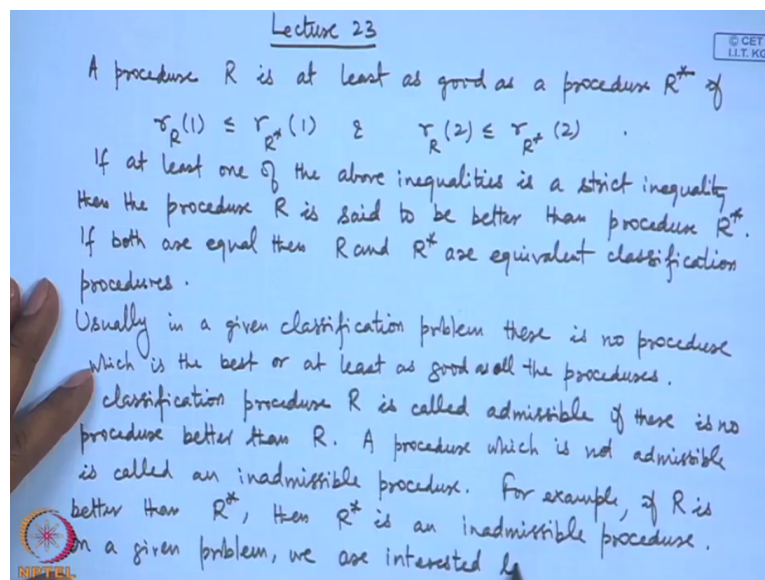 Lecture 23
© CET
I.I.T. KG
A procedure R is at least as good as a procedure R* if
r_R(1) ≤ r_R*(1) & r_R(2) ≤ r_R*(2) .
If at least one of the above inequalities is a strict inequality
then the procedure R is said to be better than procedure R*.
If both are equal then R and R* are equivalent classification
procedures.
Usually in a given classification problem there is no procedure
which is the best or at least as good as all the procedures.
classification procedure R is called admissible if there is no
procedure better than R. A procedure which is not admissible
is called an inadmissible procedure. For example, if R is
better than R*, then R* is an inadmissible procedure.
In a given problem, we are interested
NPTEL